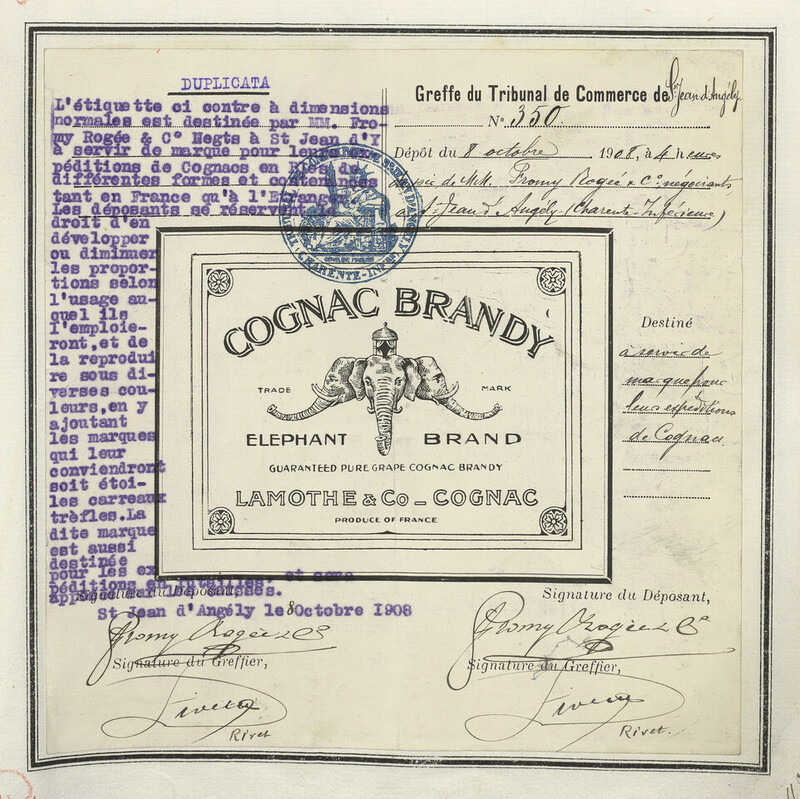 DUPLICATA
L'étiquette ci contre à dimensions
normales est destinée par MM. Fro-
my Rogée & C° Negts à St Jean d'Y
à servir de marque pour leurs ex-
péditions de Cognacs en fûts de
différentes formes et contenances
tant en France qu'à l'Etranger
Les déposants se réservent le
droit d'en
développer
ou diminuer
les propor-
tions selon
l'usage au-
quel ils
l'emploie-
ront,et de
la reprodui
re sous di-
verses cou-
leurs,en y
ajoutant
les marques
qui leur
conviendront
soit étoi-
les carreaux
trèfles.La
dite marque
est aussi
destinée
pour les ex
péditions en
St Jean d'Angély le 8 Octobre 1908
Signature du Déposant,
Fromy Rogée & C°
Signature du Greffier,
Rivet
Greffe du Tribunal de Commerce de St Jean d'Angély
N° 350.
Dépôt du 8 octobre 1908, à 4 heures
de MM. Fromy Rogée & C° négociants
à St Jean d'Angély (Charente-Inférieure)
CHARENTE-INFRE
COGNAC BRANDY
TRADE MARK
ELEPHANT BRAND
GUARANTEED PURE GRAPE COGNAC BRANDY
LAMOTHE & Co - COGNAC
PRODUCE OF FRANCE
Destiné
à servir de
marque pour
leurs expéditions
de Cognac
Signature du Déposant,
Fromy Rogée & C°
Signature du Greffier,
Rivet.